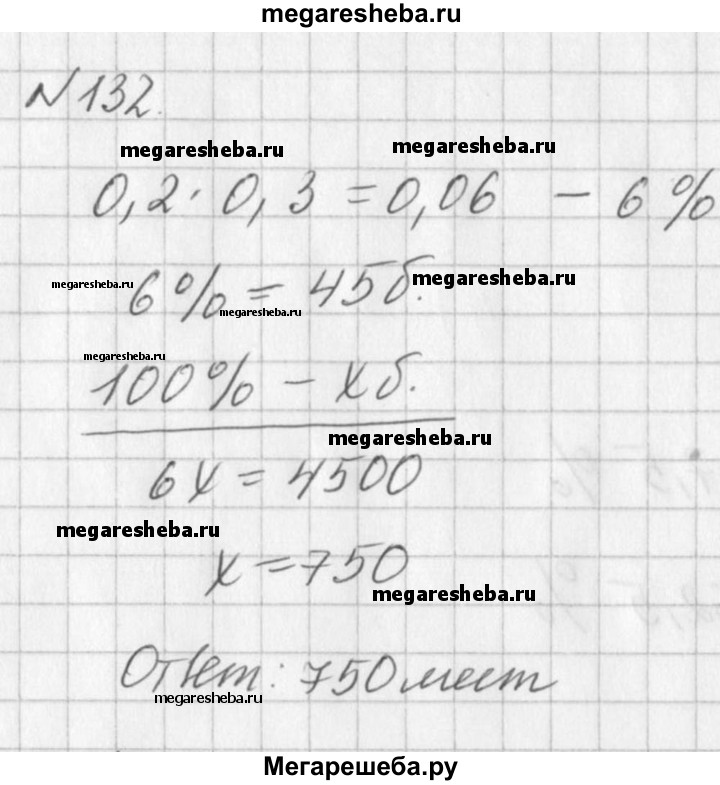 megaresheba.ru
№132.
megaresheba.ru megaresheba.ru
0,2 · 0,3 = 0,06 – 6%
megaresheba.ru 6% = 45б. megaresheba.ru
megaresheba.ru
megaresheba.ru
100% – хб.
megaresheba.ru
6х = 4500
megaresheba.ru
х = 750
megaresheba.ru
Ответ: 750 мест
megaresheba.ru
Мегарешеба.ру